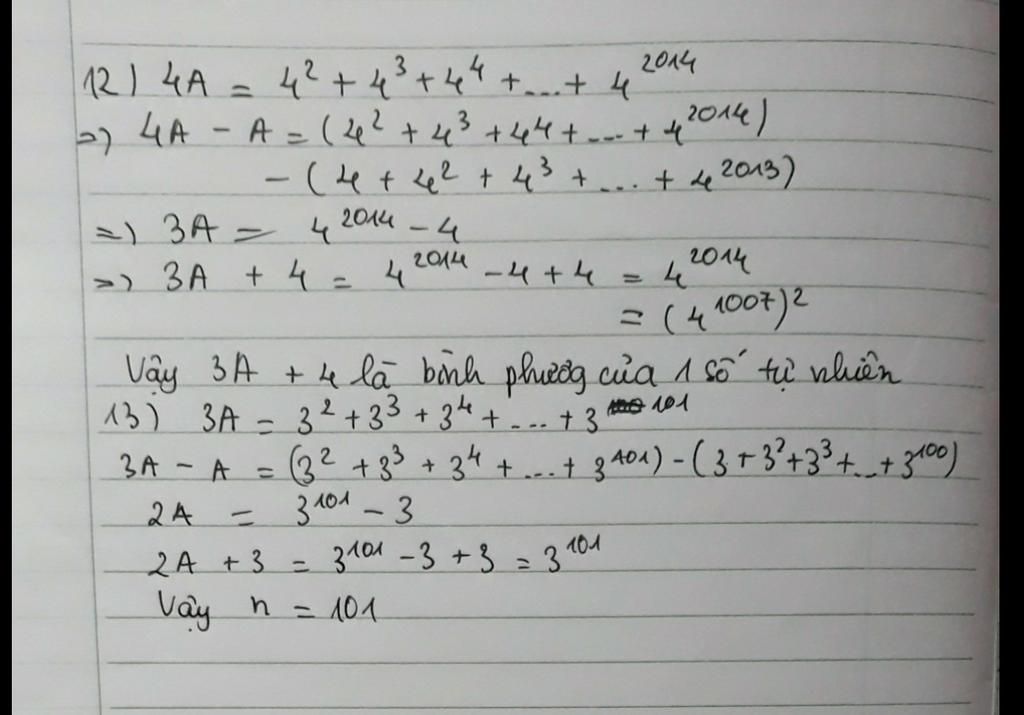 12) 4A = 4² + 4³ + 4⁴ + ... + 4²⁰¹⁴
=> 4A - A = (4² + 4³ + 4⁴ + ... + 4²⁰¹⁴)
- (4 + 4² + 4³ + ... + 4²⁰¹³)
=> 3A = 4²⁰¹⁴ - 4
=> 3A + 4 = 4²⁰¹⁴ - 4 + 4 = 4²⁰¹⁴
= (4¹⁰⁰⁷)²
Vậy 3A + 4 là bình phương của 1 số tự nhiên
13) 3A = 3² + 3³ + 3⁴ + ... + 3¹⁰¹
3A - A = (3² + 3³ + 3⁴ + ... + 3¹⁰¹) - (3 + 3² + 3³ + ... + 3¹⁰⁰)
2A = 3¹⁰¹ - 3
2A + 3 = 3¹⁰¹ - 3 + 3 = 3¹⁰¹
Vậy n = 101